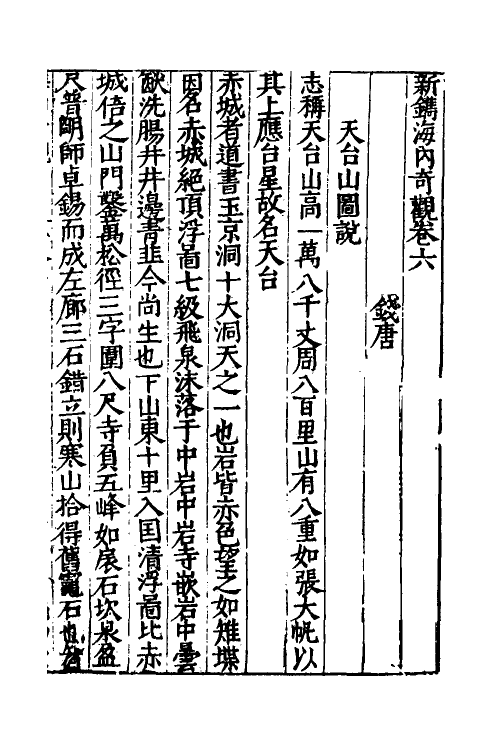 新鐫海內奇觀卷六
錢唐
天台山圖說
志稱天台山高一萬八千丈周八百里山有八重如張大帆以
其上應台星故名天台
赤城者道書玉京洞十大洞天之一也岩皆赤色望之如雉堞
因名赤城絕頂浮啚七級飛泉沫落于中岩中岩寺嵌岩中曇
猷洗腸井井邊青韭今尚生也下山東十里入囯清浮啚比赤
城倍之山門鏨萬松徑三字圍八尺寺負五峰如扆石坎泉盈
尺普明師卓錫而成左廊三石錯立則寒山拾得舊竈石也